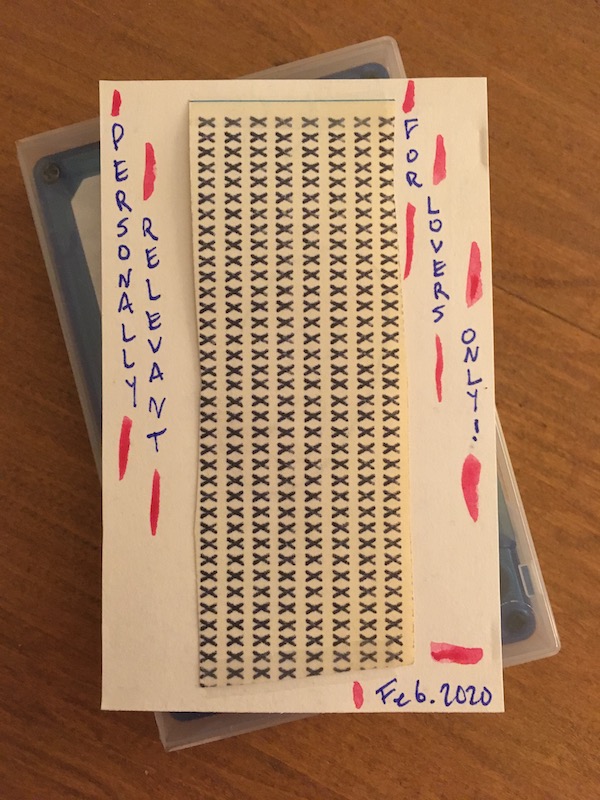 PERSONALLY
RELEVANT
FOR
LOVERS
ONLY!
Feb. 2020